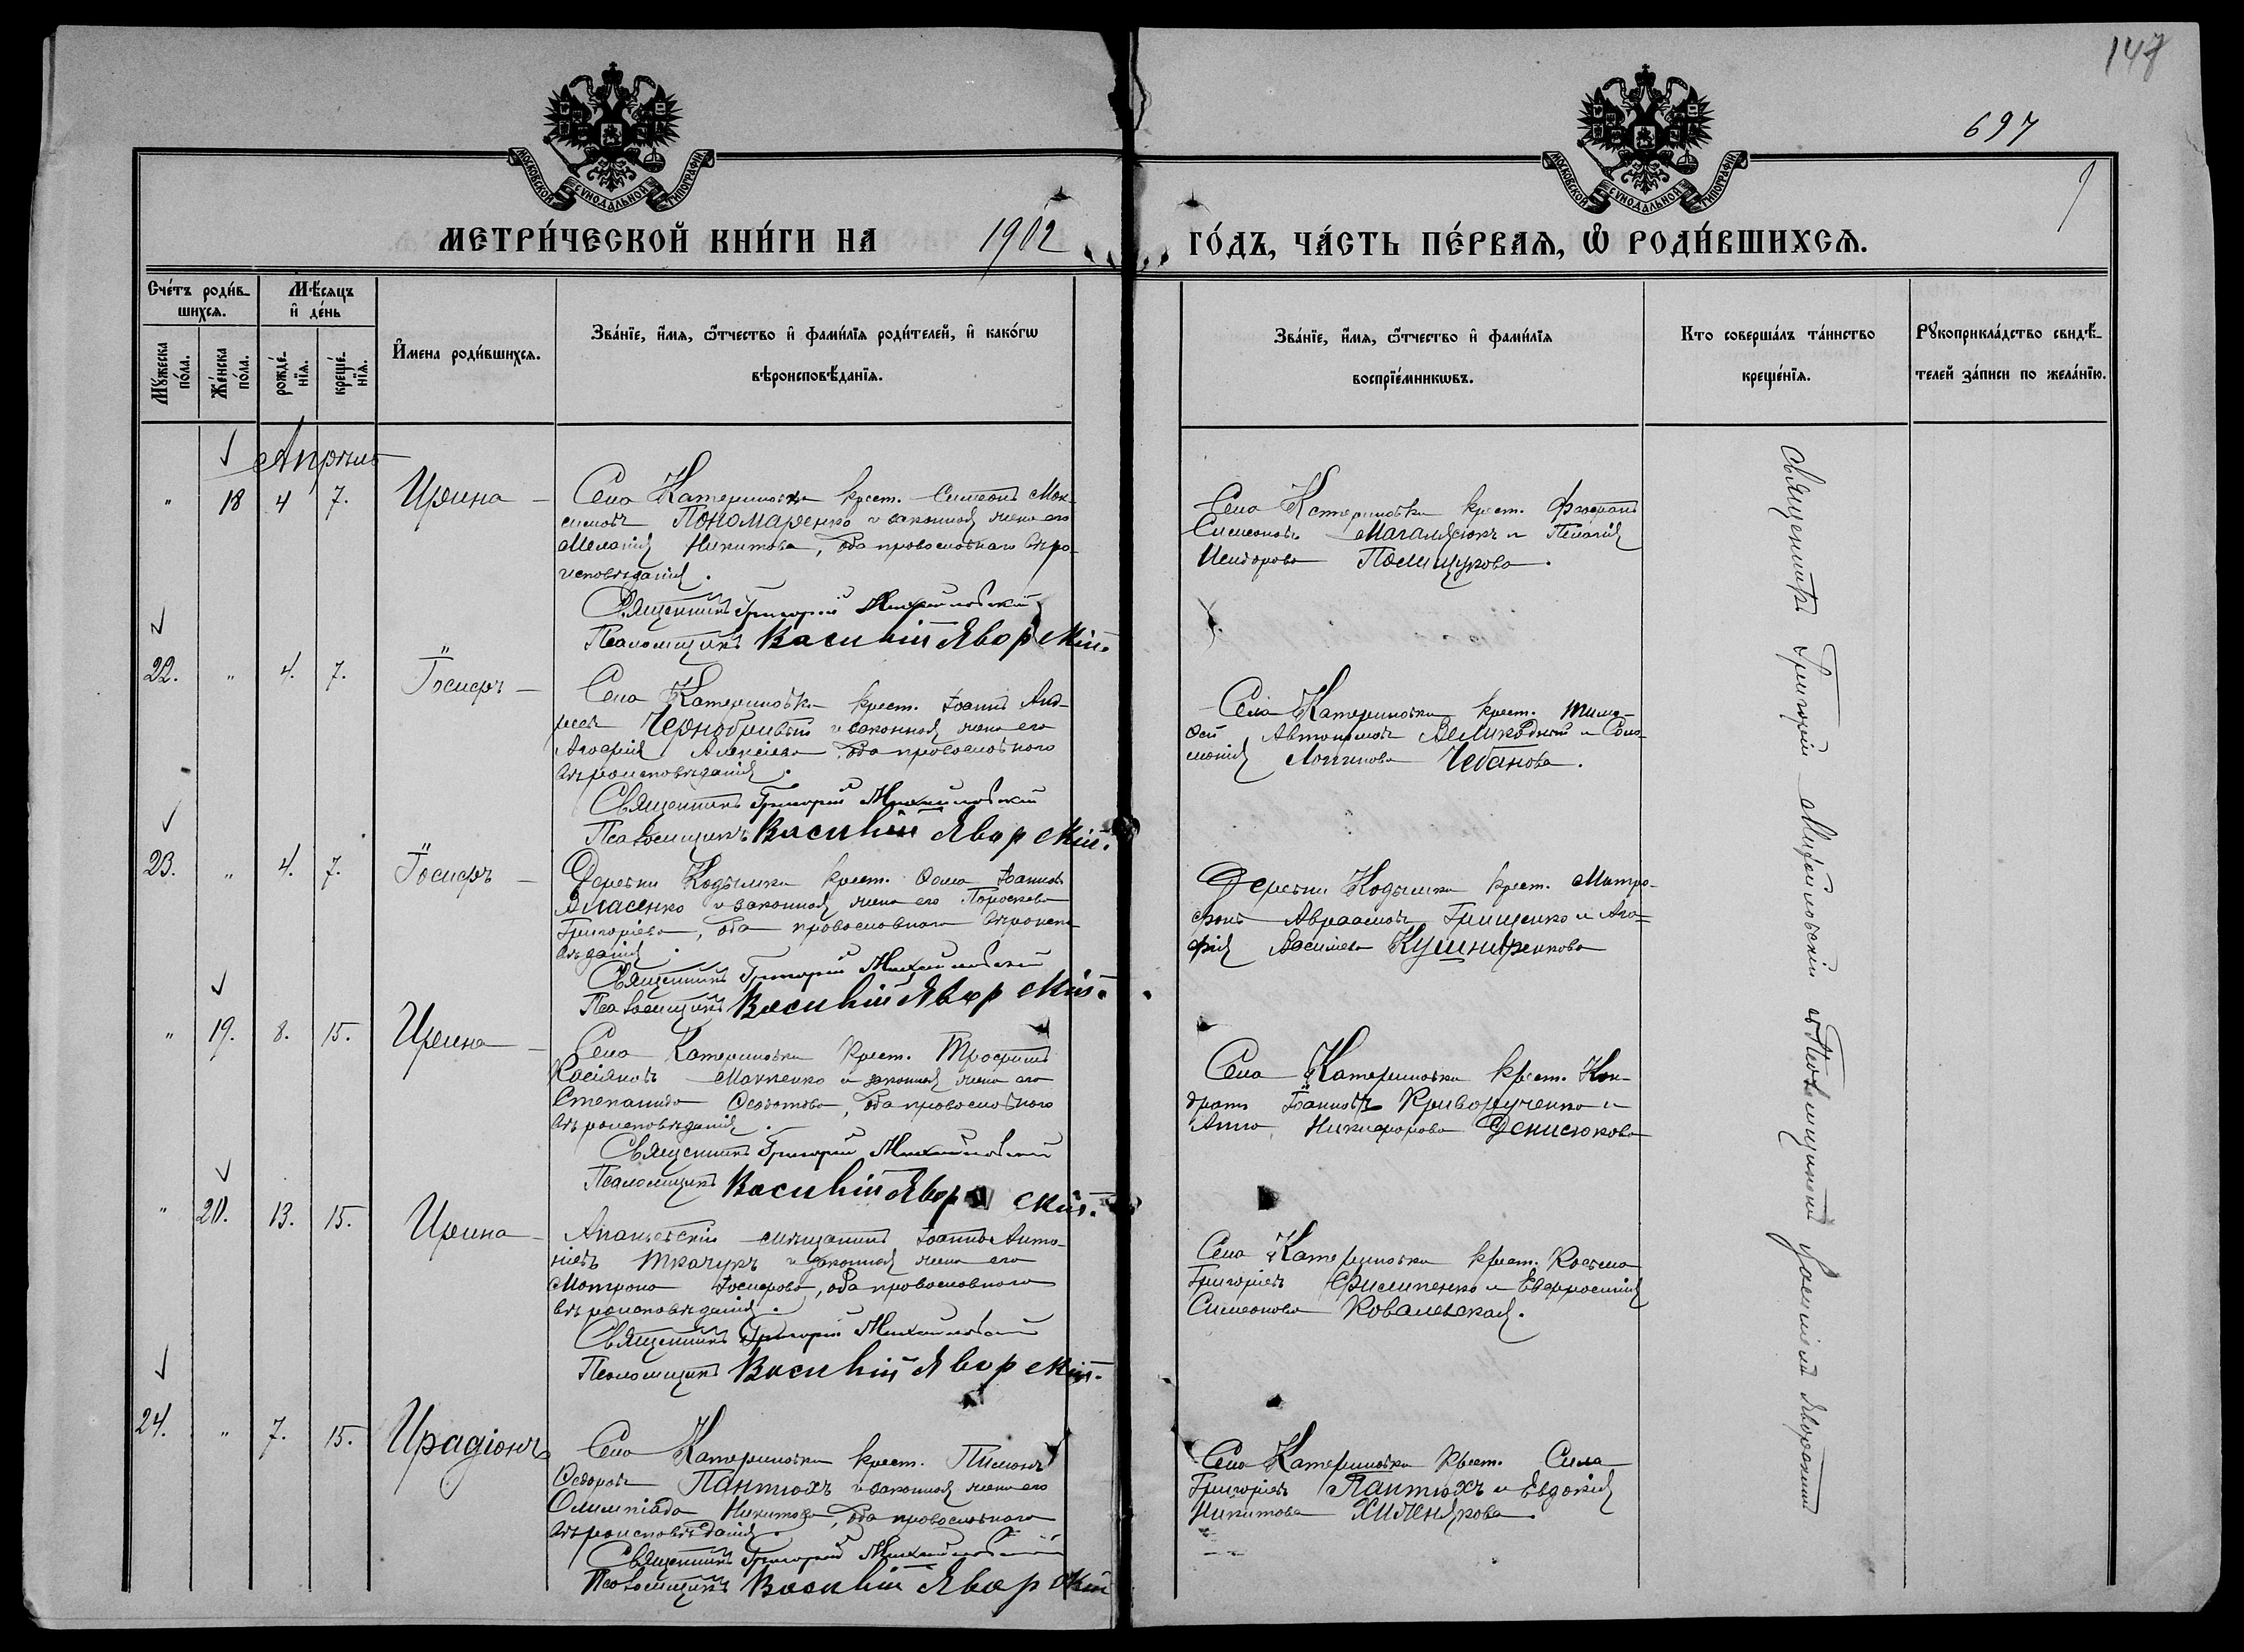 147
697
МОСКОВСКОЙ СѴНОДАЛЬНОЙ ТИПОГРАФІИ
МОСКОВСКОЙ СѴНОДАЛЬНОЙ ТИПОГРАФІИ
МЕТРИ́ЧЕСКОЙ КНИ́ГИ НА 1902 ГО́ДЪ, ЧА́СТЬ ПЕ́РВАѦ, Ѽ РОДИ́ВШИХСѦ.
Сче́тъ роди́в-
шихсѧ.
Мѣ́сѧцъ
и҆ де́нь
Мꙋ́жеска
по́ла.
Же́нска
по́ла.
рожде́-
нїѧ.
креще́-
нїѧ.
И҆мена роди́вшихсѧ.
Зва́нїе, и҆́мѧ, ѻ҆́тчество и҆ фами́лїѧ роди́телей, и҆ како́гѡ
вѣроисповѣ́данїѧ.
Зва́нїе, и҆́мѧ, ѻ҆́тчество и҆ фами́лїѧ
воспрїе́мникѡвъ.
Кто соверша́лъ та́инство
креще́нїѧ.
Рꙋкоприкла́дство свидѣ́-
телей за́писи по жела́нїю.
Апрѣль
" 18 4 7. Ирина
Села Катериновки крест. Симеонъ Мак-
симовъ Пономаренко и законная жена его
Меланія Никитова, оба православнаго вѣро-
исповѣданія.
Священникъ Григорій Михайловскій
Псаломщикъ Василій Яворскій.
Села Катериновки крест.
Симеоновъ и Пелагія
Исидорова Полищукова.
22. " 4. 7. Іосифъ
Села Катериновки крест. Іоаннъ Анд-
реевъ Чернобривый и законная жена его
Агафія Алексіева, оба православнаго
вѣроисповѣданія.
Священникъ Григорій Михайловскій
Псаломщикъ Василій Яворскій.
Села Катериновки крест. Тимо-
фей Автономовъ Великодный и Соло-
монія Логинова Чебанова.
23. " 4. 7. Іосифъ
Деревни Кодымки крест. Ѳома Іоанновъ
Власенко и законная жена его Параскева
Григоріева, оба православнаго вѣроиспо-
вѣданія.
Священникъ Григорій Михайловскій
Псаломщикъ Василій Яворскій.
Деревни Кодымки крест. Митро-
фанъ Авраамовъ Грищенко и Ага-
фія Василіева Кушниренкова
" 19. 8. 15. Ирина
Села Катериновки крест. Трофимъ
Касіановъ Макиенко и законная жена его
Степанида Ѳеодотова, оба православнаго
вѣроисповѣданія.
Священникъ Григорій Михайловскій
Псаломщикъ Василій Яворскій.
Села Катериновки крест. Кон-
дратъ Іоанновъ Криворученко и
Анна Никифорова Денисюкова
" 20. 13. 15. Ирина
Ананьевскій мѣщанинъ Іоаннъ Анто-
ніевъ Ткачукъ и законная жена его
Матрона Іосифова, оба православнаго
вѣроисповѣданія.
Священникъ Григорій Михайловскій
Псаломщикъ Василій Яворскій.
Села Катериновки крест. Косьма
Григоріевъ Филипенко и Евфросинія
Симеонова Ковалевская.
24. " 7. 15. Иродіонъ
Села Катериновки крест. Пименъ
Ѳедоровъ Пантюхъ и законная жена его
Олимпіада Никитова, оба православнаго
вѣроисповѣданія.
Священникъ Григорій Михайловскій
Псаломщикъ Василій Яворскій
Села Катериновки крест. Сила
Григоріевъ Пантюхъ и Евдокія
Никитова
Священникъ Григорій Михайловскій съ Псаломщикомъ Василіемъ Яворскимъ